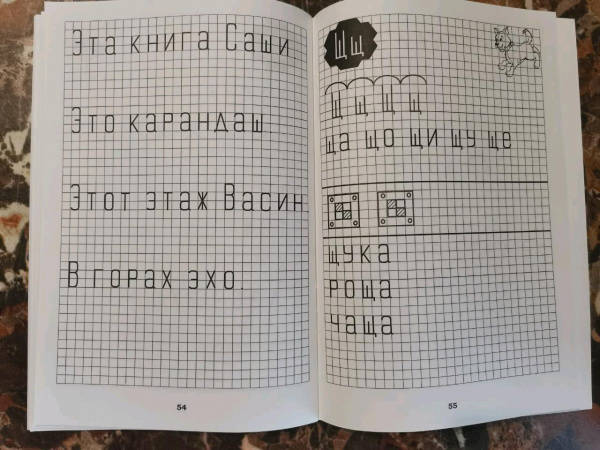 Эта книга Саши
Это карандаш
Этот этаж Васин.
В горах эхо.
54
Щщ
Щ щ Щ щ
ща що щи щу ще
щука
роща
чаща
55